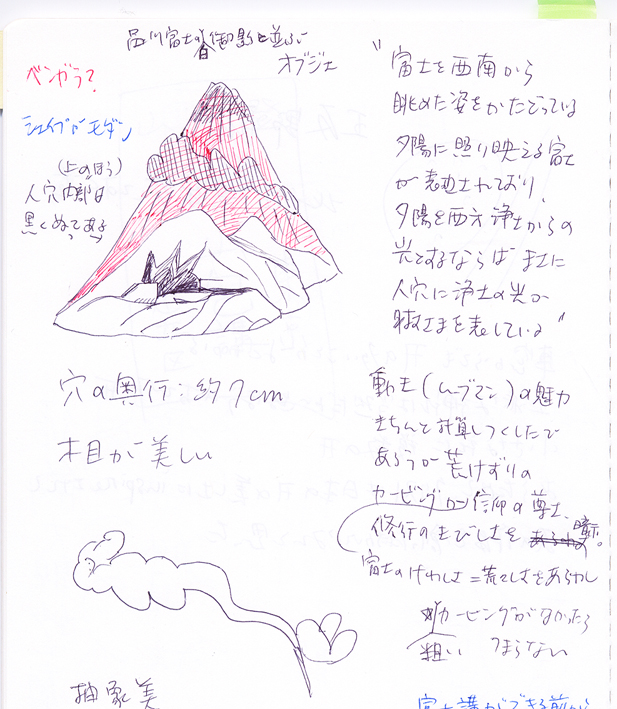 品川富士の御影と並ぶ
オブジェ
ベンガラ?
シェイプがモダン
(上のほう)
人穴内部は
黒くぬってある
"富士を西南から
眺めた姿をかたどっている
夕陽に照り映える富士
が表面されており、
夕陽を西方浄土からの
光とするならばまさに
人穴に浄土の光が
射すさまを表している"
穴の奥行:約7cm
木目が美しい
動き(ムーブマン)の魅力
きちんと計算しつくしたで
あろうが荒けずりの
カービングが信仰の尊さ、
修行のきびしさを 暗示。
富士のけわしさ=荒々しさをあらわし
カービングがなかったら
粗い つまらない
抽象美
富士講ができる前から